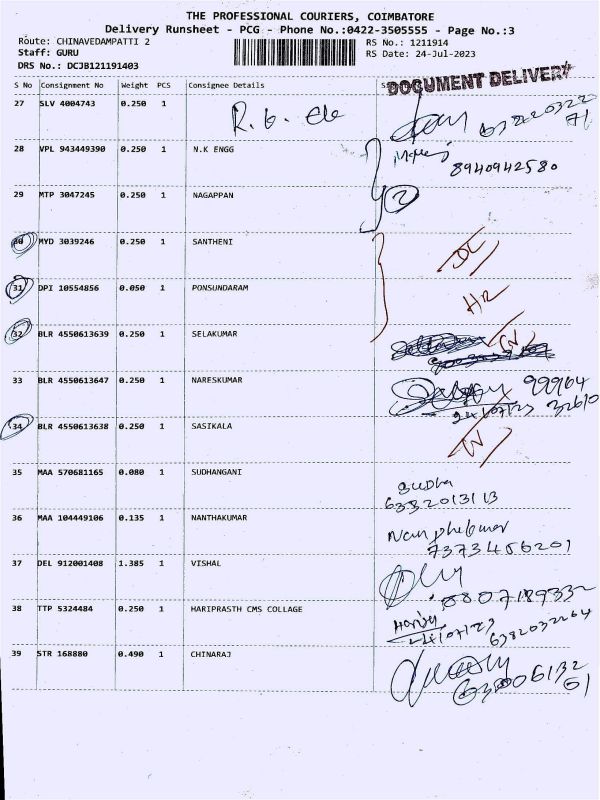 THE PROFESSIONAL COURIERS, COIMBATORE
Delivery Runsheet - PCG - Phone No.:0422-3505555 - Page No.:3
Route: CHINAVEDAMPATTI 2 RS No.: 1211914
Staff: GURU RS Date: 24-Jul-2023
DRS No.: DCJB121191403
S No Consignment No Weight PCS Consignee Details
DOCUMENT DELIVERY
27 SLV 4004743 0.250 1
28 VPL 943449390 0.250 1 N.K ENGG
8940942580
29 MTP 3047245 0.250 1 NAGAPPAN 2
30 MYD 3039246 0.250 1 SANTHENI
DL
31 DPI 10554856 0.050 1 PONSUNDARAM
HR
32 BLR 4550613639 0.250 1 SELAKUMAR
33 BLR 4550613647 0.250 1 NARESKUMAR
99964
24/07/23 32610
34 BLR 4550613638 0.250 1 SASIKALA
35 MAA 570681165 0.080 1 SUDHANGANI
Sudha
36 MAA 104449106 0.135 1 NANTHAKUMAR
7373456201
37 DEL 912001408 1.385 1 VISHAL
8807189332
38 TTP 5324484 0.250 1 HARIPRASTH CMS COLLAGE
24/07/23 6382032264
39 STR 168880 0.490 1 CHINARAJ